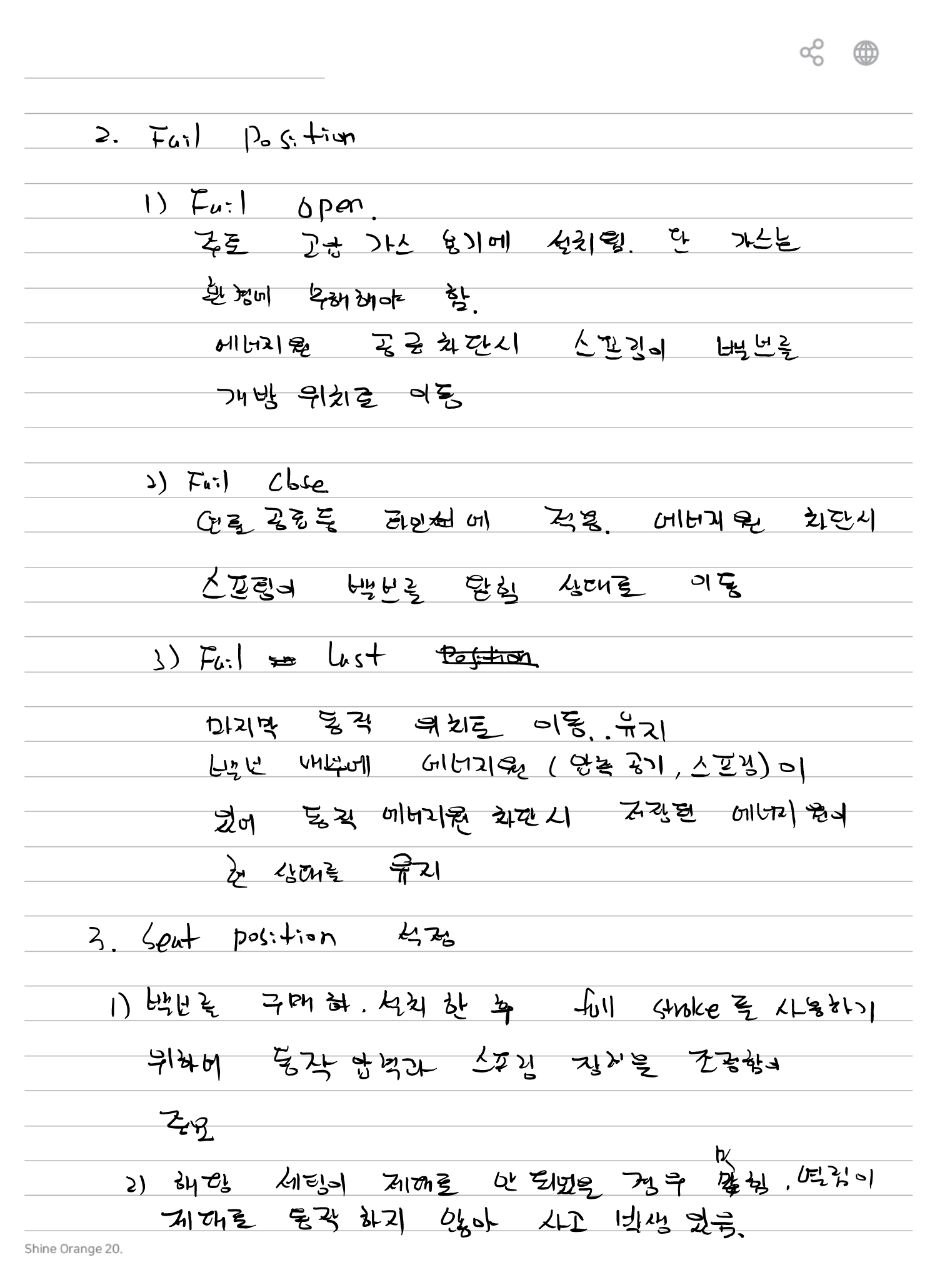 2. Fail Position
1) Fail open.
주로 고압 가스 용기에 설치됨. 단 가스는
환경에 무해해야 함.
에너지원 공급 차단시 스프링이 밸브를
개방 위치로 이동
2) Fail Close
연료 공급등 라인에 적용. 에너지원 차단시
스프링이 밸브를 닫힘 상태로 이동
3) Fail Last
마지막 동작 위치로 이동. .유지
밸브 내부에 에너지원 (압축 공기, 스프링)이
있어 동작 에너지원 차단시 저장된 에너지원이
현 상태를 유지
3. Seat position
1) 밸브를 구매 하. 설치 한 후 full stroke를 사용하기
위하여 동작 압력과 스프링 장력을 조정함이
중요
2) 해당 세팅이 제대로 안 되었을 경우 닫힘. 열림이
제대로 동작 하지 않아 사고 발생 있음.
Shine Orange 20.